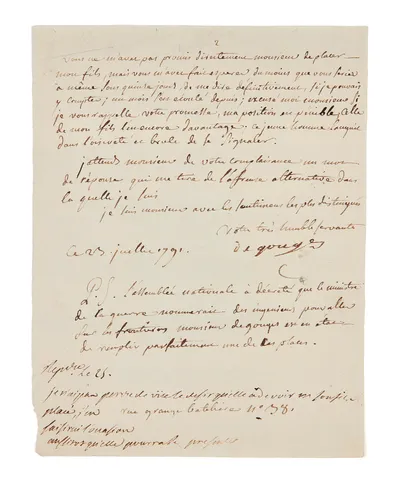 2
vous ne m'avez pas promis directement monsieur de placer
mon fils, mais vous m'avez fait esperer du moins que vous seriez
à même sous quinze jours, de me dire définitivement, si je pouvais
y compter; un mois s'est écoulé depuis; excusé moi monsieur si
je vous rappelle votre promesse, ma position est penible, celle
de mon fils l'est encore davantage. ce jeune homme languit
dans l'oisiveté et brule de se signaler.
j'attends monsieur de votre complaisance un mot
de réponse qui me tire de l'affreuse alternative dans
la quelle je suis
je suis monsieur avec les sentimens les plus distingués
votre très humble servante
ce 23 juillet 1791. de gouges
P.S. l'assemblée nationale à décrété que le ministre
de la guerre nommerait des ingenieurs pour aller
sur les frontieres monsieur de gouges est en etat
de remplir parfaitement une de ces places.
Repdue le 25.
je n'ai pas perdu de vue le desir qu'elle a de voir son fils
placé, rue grange batelière n°
saisirai l'occasion
aussitot qu'elle pourra se presenter